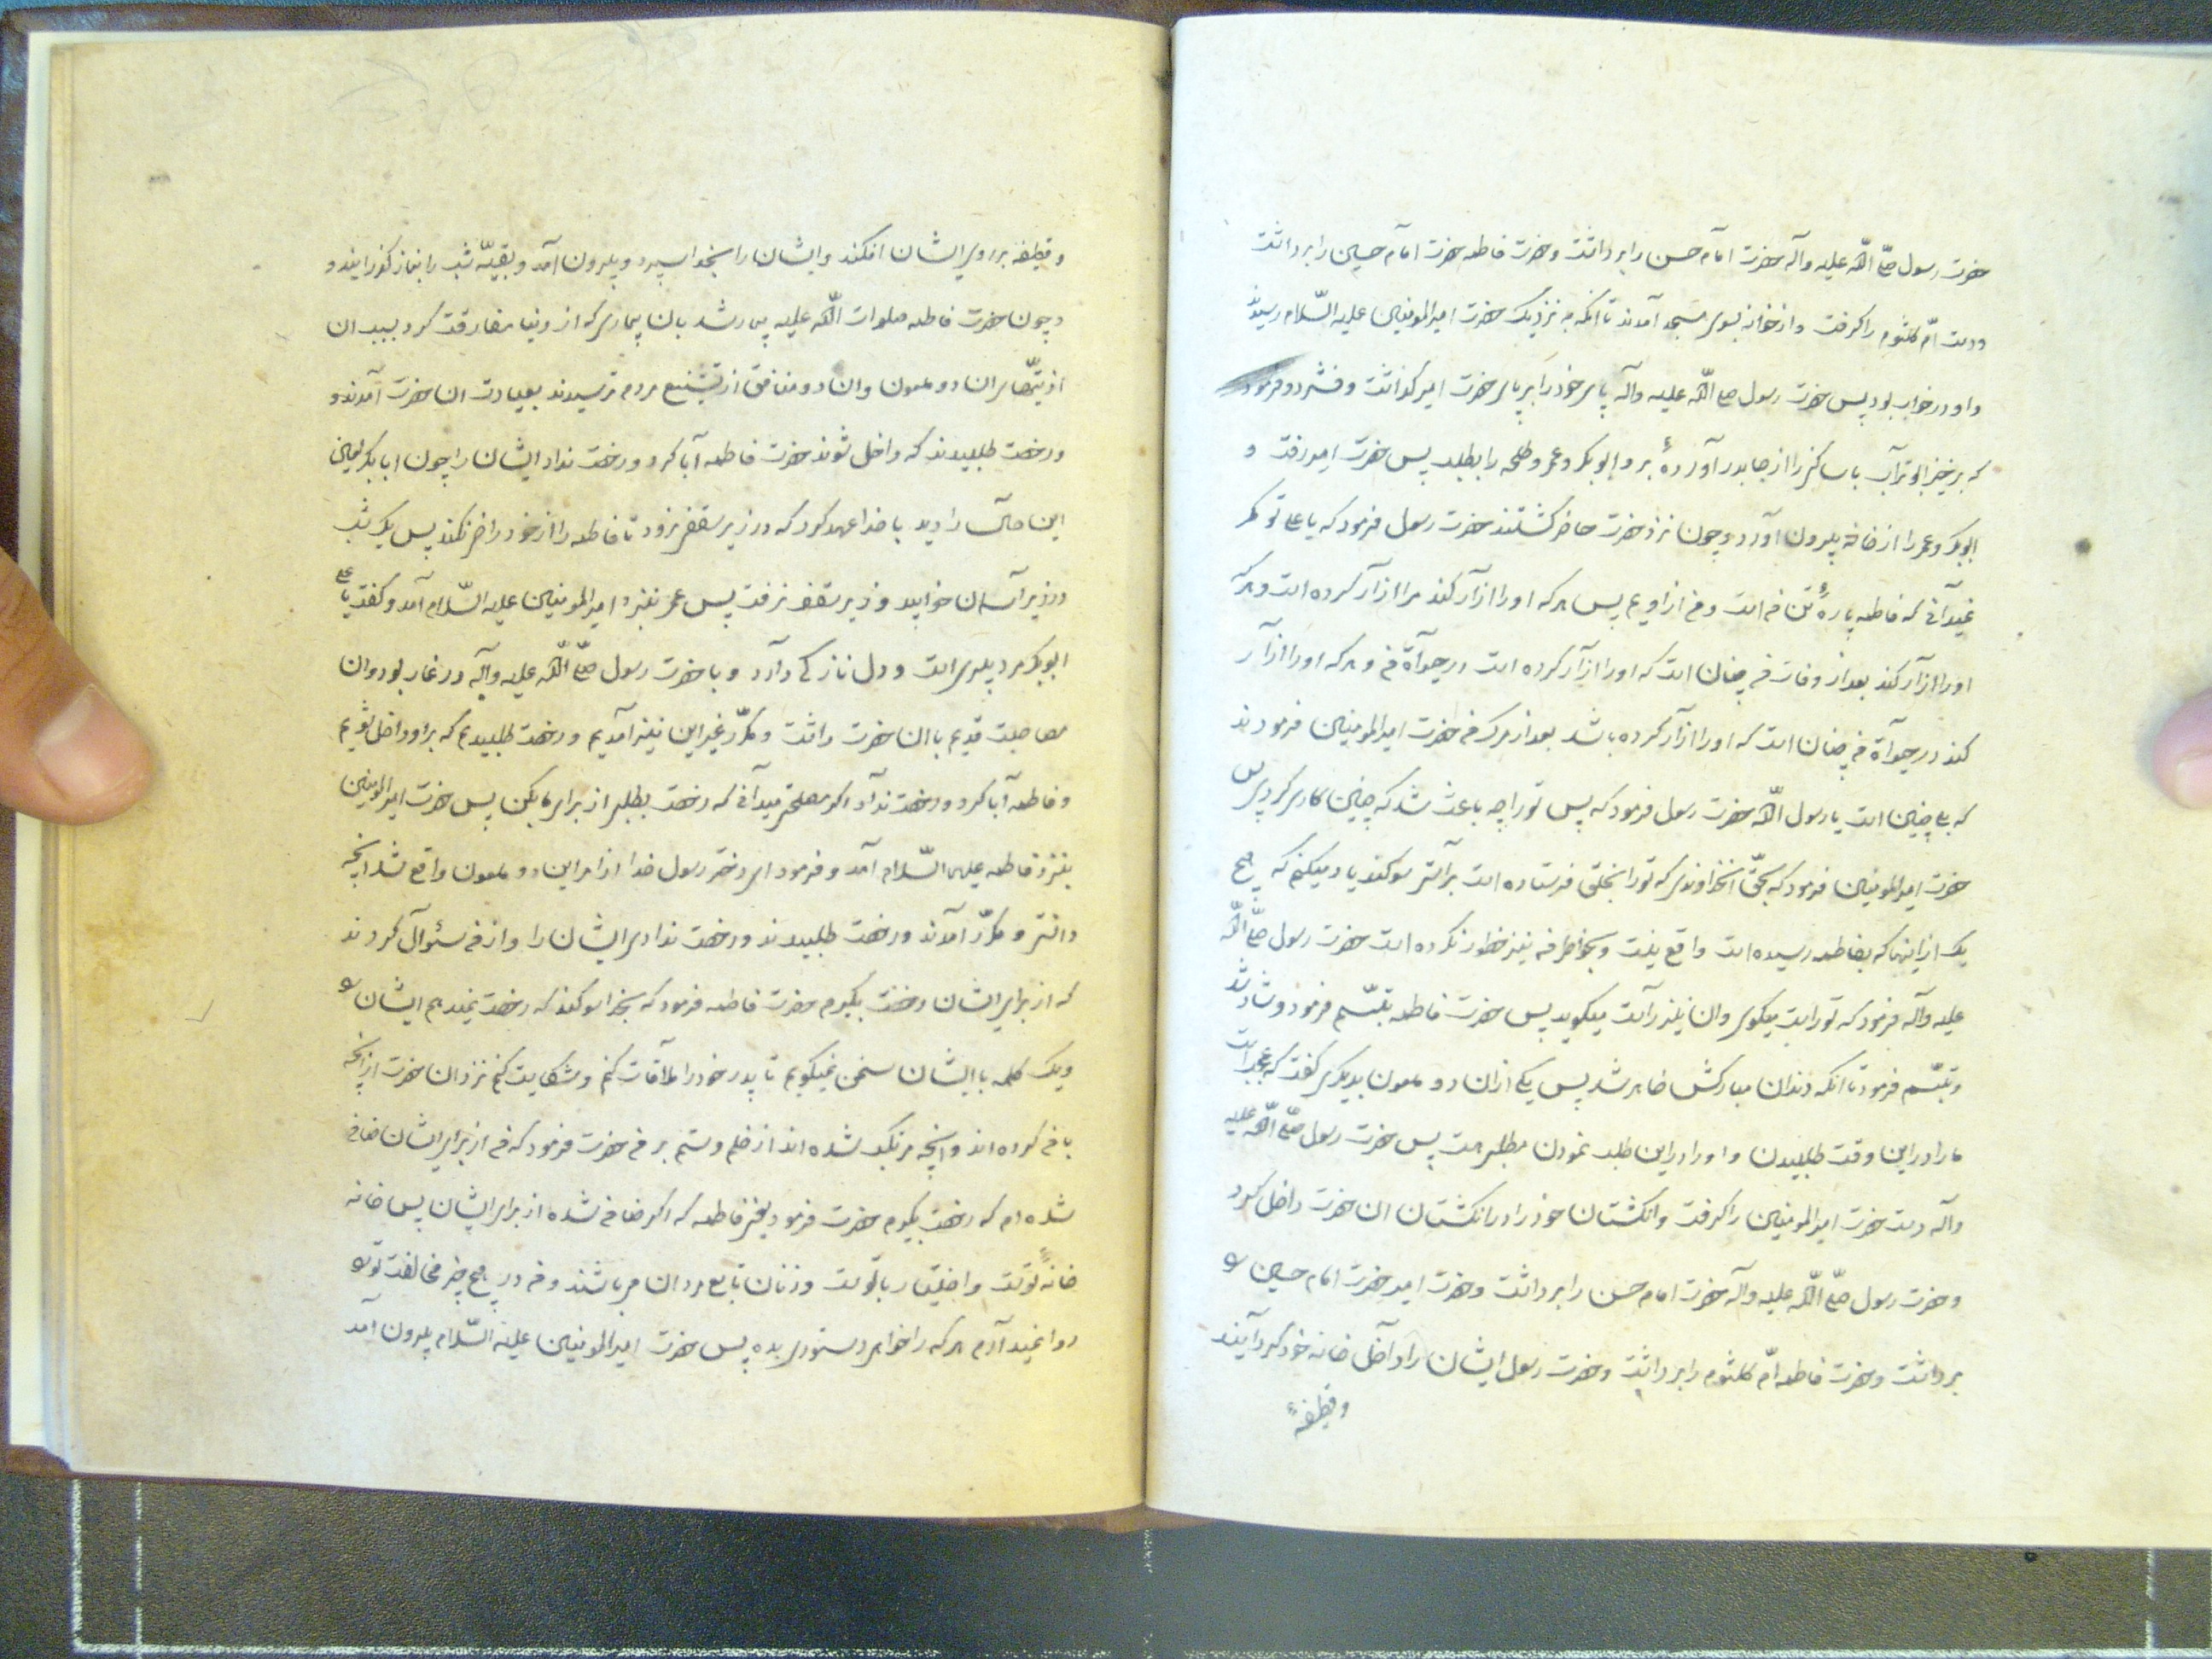 حضرت رسول صلّی اللّه علیه وآله حضرت امام حسن را برداشت و حضرت فاطمه حضرت امام حسین را برداشت
و دست امّ کلثوم را گرفت و از خانه بسوی مسجد آمدند تا انکه به نزدیک حضرت امیرالمومنین علیه السّلام رسیدند
و او در خواب بود پس حضرت رسول صلی اللّه علیه وآله پای خود را بر پای حضرت امیر گذاشت و فشرد و فرمود
که برخیز ابوتراب بسا ساکنی را از جا بدر آوردهٔ برو ابوبکر و عمر و طلحه را بطلب پس حضرت امیر رفت و
ابوبکر و عمر را از خانه بیرون آورد و چون نزد حضرت حاضر گشتند حضرت رسول فرمود که یا علی تو مگر
نمیدانی که فاطمه پارهٔ تن منست و من از اویم پس هر که او را ازار کند مرا ازار کرده است و هر که
او را ازار کند بعد از وفات من چنان است که او را ازار کرده است در حیوآة من و هر که او را ازار
کند در حیوآة من چنان است که او را ازار کرده باشد بعد از مرگ من حضرت امیرالمومنین فرمودند
که بلی چنین است یا رسول اللّه حضرت رسول فرمود که پس تو را چه باعث شد که چنین کاری کردی پس
حضرت امیرالمومنین فرمود که بحقّ انخداوندی که تو را بخلق فرستاده است براستی سوگند یاد میکنم که هیچ
یک از اینها که بفاطمه رسیده است واقع نیست و بخاطر من نیز خطور نکرده است حضرت رسول صلّی اللّه
علیه وآله فرمود که تو راست میگوی و ان نیز راست میگوید پس حضرت فاطمه تبسّم فرمود و شاد شد
و تبسّم فرمود تا انکه دندان مبارکش ظاهر شد پس یکی از ان دو ملعون بدیگری گفت که عجب است
ما را در این وقت طلبیدن و او را در این طلب نمودن مطلبی هست پس حضرت رسول صلّی اللّه علیه
وآله دست حضرت امیرالمومنین را گرفت و انگشتان خود را در انگشتان ان حضرت داخل کرد
و حضرت رسول صلّی اللّه علیه وآله حضرت امام حسن را برداشت و حضرت امیر حضرت امام حسین را
برداشت و حضرت فاطمه امّ کلثوم را برداشت و حضرت رسول ایشان را داخل خانه خود گردآیند
و قطیفهٔ
و قطیفه بر روی ایشان افکند و ایشان را بخدا سپرد و بیرون آمد و بقیّه شب را بنماز گذرانید و
و چون حضرت فاطمه صلوات اللّه علیه بیمار شد بان بیماری که از دنیا مفارقت کرد بسبب ان
اذیّتهای ان دو ملعون و ان دو منافق از تشنیع مردم ترسیدند بعیادت ان حضرت آمدند و
و رخصت طلبیدند که داخل شوند حضرت فاطمه آبا کرد و رخصت نداد ایشان را چون ابابکر لعین
این حال را دید با خدا عهد کرد که در زیر سقفی نرود تا فاطمه را از خود راضی نکند پس یک شب
در زیر آسمان خوابید و زیر سقف نرفت پس عمر بنزد امیرالمومنین علیه السّلام آمد و گفت یا علی
ابوبکر مرد پیریست و دل نازکی دارد و با حضرت رسول صلّی اللّه علیه وآله در غار بود و ان
مصاحبت قدیم با ان حضرت داشت و مکرّر غیر این نیز آمدیم و رخصت طلبیدیم که بر او داخل شویم
و فاطمه آبا کرد و رخصت نداد اگر مصلحت میدآنی که رخصت بطلبی از برای ما بکن پس حضرت امیرالمومنین
بنزد فاطمه علیها السّلام آمد و فرمود ای دختر رسول خدا از امر این دو ملعون واقع شد انچه
دانستی و مکرّر آمدند و رخصت طلبیدند و رخصت ندادی ایشان را و از من سئوآل کردند
که از برای ایشان رخصت بگیرم حضرت فاطمه فرمود که بخدا سوگند که رخصت نمیدهم ایشان را
و یک کلمه با ایشان سخن نمیگویم تا پدر خود را ملاقات کنم و شکایت کنم نزد ان حضرت از انچه
با من کرده اند و انچه مرتکب شده اند از ظلم و ستم بر من حضرت فرمود که من از برای ایشان ضامن
شده ام که رخصت بگیرم حضرت فرمود بخیر فاطمه که اگر ضامن شده از برای ایشان پس خانه
خانهٔ توست و اختیار با توست و زنان تابع مردان میباشند و من در هیچ چیز مخالفت تو را
روا نمیدآرم هر که را خواهی دستوری بده پس حضرت امیرالمومنین علیه السّلام بیرون آمد